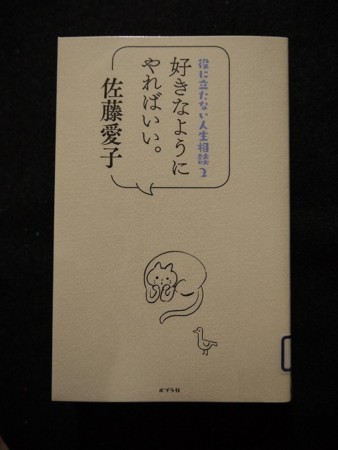 役に立たない人生相談2
好きなように
やればいい。
佐藤愛子
ポプラ社